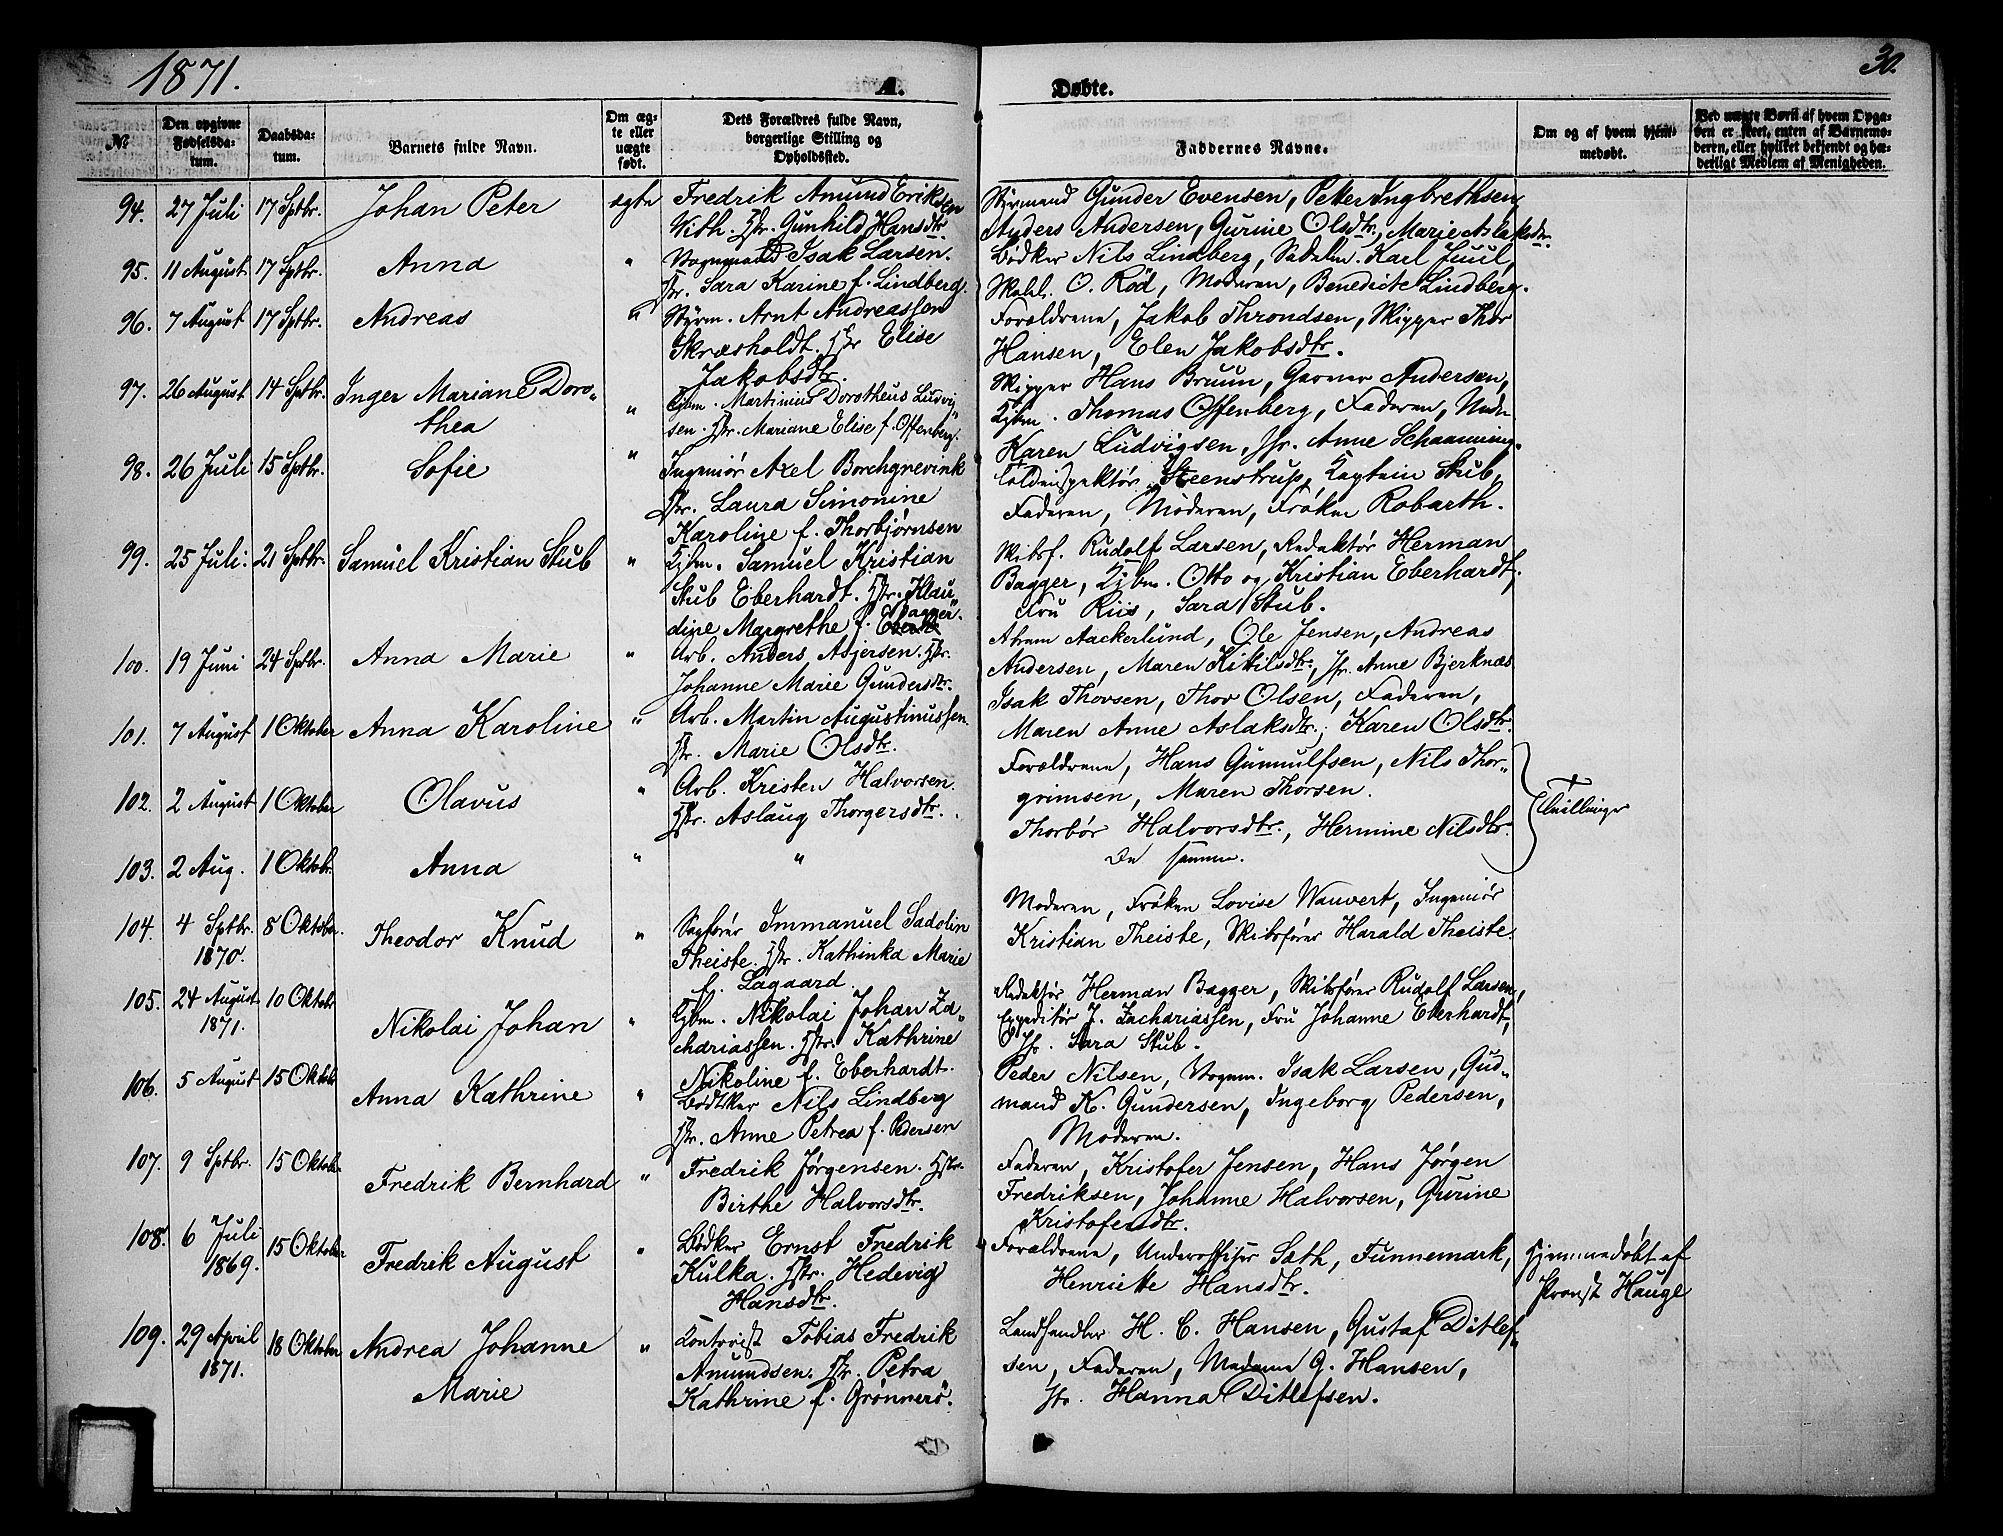 1871.
A.
Døbte.
30.
№
Den opgivne Fødselsdatum.
Daabsdatum.
Barnets fulde Navn.
Om ægte eller uægte født.
Dets Forældres fulde Navn, borgerlige Stilling og Opholdssted.
Faddernes Navne.
Om og af hvem hjemmedøbt.
Ved uægte Børn af hvem Opgaven er skeet, enten af Barnemoderen, eller hvilket bekjendt og hæderligt Medlem af Menigheden.
94. 27 Juli 17 Sptbr. Johan Peter ægte Fredrik Amund Eriksen
With. Hstr. Gunhild Hansdtr.
Styrmand Gunder Evensen, Petter Ingbrethsen,
Anders Andersen, Gurine Olsdtr., Marie Aslaksdtr.
95. 11 August 17 Sptbr. Anna " Vognmand Isak Larsen.
Hstr. Sara Karine f. Lindberg.
Bødker Nils Lindberg, Sadelm. Karl Juul,
O. Röd, Moderen, Benedicte Lindberg.
96. 7 August 17 Sptbr. Andreas " Styrm. Arnt Andreassen
Skræsholdt. Hstr Elise
Jakobsdtr.
Forældrene, Jakob Throndsen, Skipper Thor
Hansen, Elen Jakobsdtr.
97. 26 August 14 Sptbr. Inger Mariane Doro-
thea
" Kjbm. Martinius Dorotheus Ludvig
sen. Hstr. Mariane Elise f. Offenberg.
Skipper Hans Bruun, Garver Andersen,
Kjbm. Thomas Offenberg, Faderen, Mad.
Karen Ludvigsen, Jfr. Anne Schaanning.
98. 26 Juli 15 Sptbr. Sofie " Ingeniør Axel Borchgrevink
Hstr. Laura Simonine
Karoline f. Thorbjørnsen
Toldinspektør Steenstrup, Kaptein Stub,
Faderen, Moderen, Frøken Robarth.
99. 25 Juli. 21 Sptbr. Samuel Kristian Stub " Kjbm. Samuel Kristian
Stub Eberhardt. Hstr. Klau
dine Margrethe f. Bagger.
Skibsf. Rudolf Larsen, Redaktör Herman
Bagger, Kjbm. Otto og Kristian Eberhardt,
Fru Riis, Sara Stub.
100. 19 Juni 24 Sptbr. Anna Marie " Arb. Anders Asjersen. Hstr.
Johanne Marie Gundersdtr.
Abram Aackerlund, Ole Jensen, Andreas
Andersen, Maren Kitilsdtr., Jfr. Anne Bjerknæs
101. 7 August 1 Oktober Anna Karoline " Arb. Martin Augustinussen
Hstr. Marie Olsdtr.
Isak Thorsen, Thor Olsen, Faderen,
Maren Anne Aslaksdtr., Karen Olsdtr.
102. 2 August 1 Oktober Olavus " Arb. Kristen Halvorsen.
Hstr. Aslaug Thorgersdtr.
Forældrene, Hans Gunnulfsen, Nils Thor-
grimsen, Maren Thorsen.
Thorbör Halvorsdtr., Hermine Nilsdtr.
Tvillinger
103. 2 Aug. 1 Oktobr. Anna " "
De samme.
104. 4 Sptbr. 1870. 8 Oktober. Theodor Knud " Sagfører Immanuel Sadolin
Theiste. Hstr. Kathinka Marie
f. Lagaard.
Moderen, Frøken Lovise Wauvert, Ingeniør
Kristian Theiste, Skibsfører Harald Theiste.
105. 24 August 1871. 10 Oktobr Nikolai Johan " Kjbm. Nikolai Johan Za-
chariassen. Hstr. Kathrine
Nikoline f. Eberhardt.
Redaktør Herman Bagger, Skibsfører Rudolf Larsen,
Expeditør J. Zachariassen, Fru Johanne Eberhardt,
Jfr. Sara Stub.
106. 5 August 15 Oktob Anna Kathrine " Bødtker Nils Lindberg
Hstr. Anne Petrea f. Pedersen
Peder Nilsen, Vognm. Isak Larsen, Gud-
mand K. Gundersen, Ingeborg Pedersen,
Moderen.
107. 9 Sptbr. 15 Oktobr Fredrik Bernhard " Fredrik Jørgensen. Hstr.
Birthe Halvorsdtr.
Faderen, Kristofer Jensen, Hans Jørgen
Fredriksen, Johanne Halvorsen, Gurine
Kristofersdtr.
108. 6 Juli 1869. 15 Oktober Fredrik August " Bødker Ernst Fredrik
Kulka. Hstr. Hedevig
Hansdtr.
Forældrene, Underoffiser Sæth, Funnemark,
Henriette Hansdtr.
Hjemmedøbt af
Provst Hauge
109. 29 April 1871. 18 Oktober Andrea Johanne
Marie
" Kontorist Tobias Fredrik
Amundsen. Hstr. Petra
Kathrine f. Grønnerö.
Landhandler H. C. Hansen, Gustaf Ditlef-
sen, Faderen, Madame G. Hansen,
Jfr. Hanna Ditlefsen.